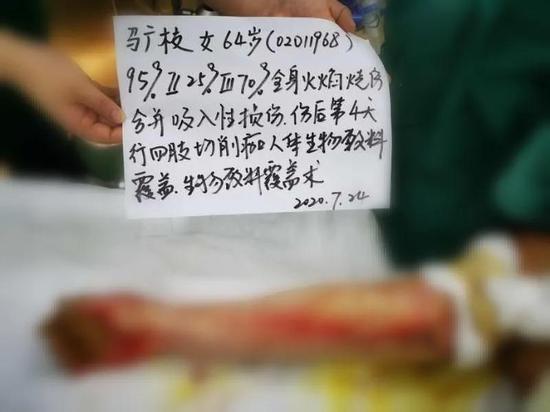 马广校 女 64岁 (02011968)
95% II 25% III 70% 全身火焰烧伤
合并吸入性损伤.伤后第4天
行四肢切削痂 人体生物敷料
覆盖.生物敷料覆盖术
2020.7.24